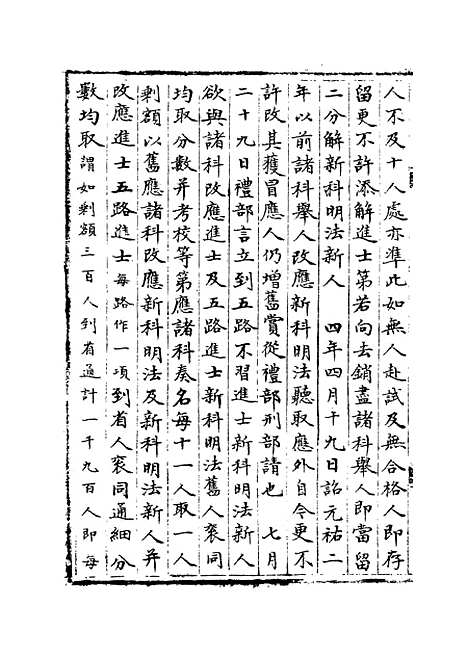 人不及十人處亦準此如無人赴試及無合格人即存
留更不許添解進士第若向去銷盡諸科舉人即當留
二分解新科明法新人　四年四月十九日詔元祐二
年以前諸科舉人改應新科明法聽取應外自今更不
許改其獲冒應人仍增舊賞從禮部刑部請也　七月
二十九日禮部言立到五路不習進士新科明法新人
欲與諸科改應進士及五路進士新科明法舊人衮同
均取分數并考校等第應諸科奏名每十一人取一人
剩額以舊應諸科改應新科明法及新科明法新人并
改應進士五路進士每路作一項到省人衮同通細分
數均取謂如剩額三百人到省通計一千九百人即每